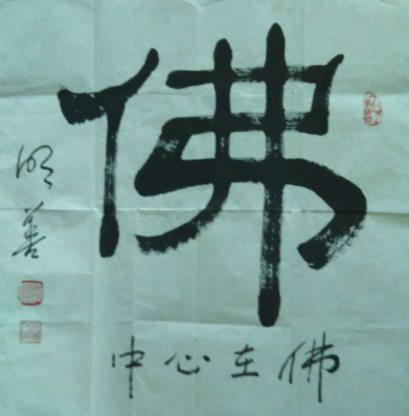 佛
佛在心中
明善